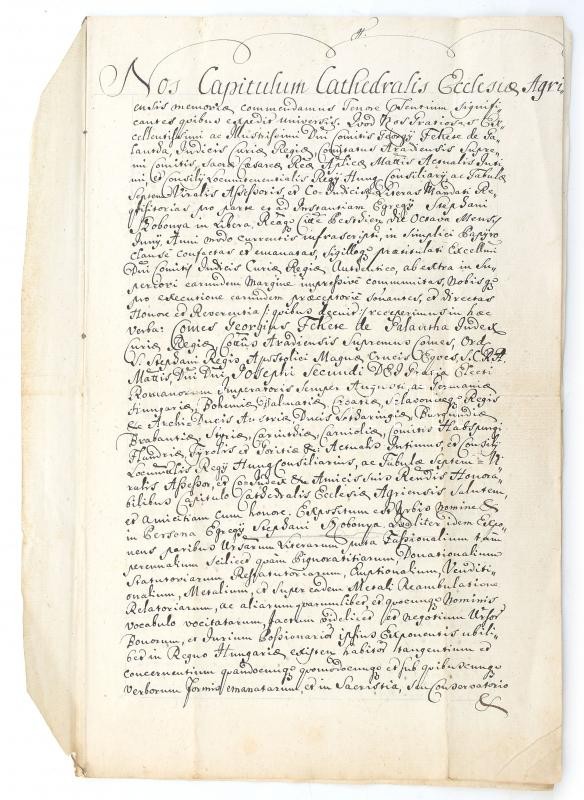 4.
Nos Capitulum Cathedralis Ecclesiæ Agri-
ensis memoriæ commendamus Tenore Presentium signifi-
cantes quibus expedit universis. Quod Nos Gratiosas Ex-
cellentissimi ac Illustrissimi Dni Comitis Georgy Fekete de Ga-
lantha, Judicis Curiæ Regiæ Comitatus Aradiensis Supre-
mi Comitis, Sacræ Cæsareæ Reæ Aplicæ Mattis Actualis Inti-
mi et Consily Locumtenentialis Regy Hung Consiliary ac Tabulæ
Septem Viralis Assessoris, et Co-Judicis Literas Mandati Re-
quisitorias pro parte et ad Instantiam Egregy Stephani
Bobonya in Libera, Reaq Cittte Pestien die Octava Mensis
Juny, Anni modo currentis infrascripti, in simplici Papyro
clause confectas et emanatas, sigilloq prætitulati Excellmi
Dni Comitis Judicis Curiæ Regiæ Authentico, ab extra in Su-
periori earundem Margine impressive communitas, Nobisq
pro executione earundem præceptorie sonantes, et directas
Honore et Reverentia /: quibus decuit :/ recepimus in hæc
verba: Comes Georgius Fekete de Galantha Judex
Curiæ Regiæ Cottus Aradiensis Supremus Comes, Ord.
S. Stephani Regis Apostolici Magnæ Crucis Eques, S. C. R. A.
Mattis, Dni Dni Josephi Secundi DEI Gratia Electi
Romanorum Imperatoris Semper Augusti, ac Germaniæ
Hungariæ, Bohemiæ Dalmatiæ Croatiæ, Sclavoniæq Regis
&c Archi-Ducis Austriæ Ducis Lotharingiæ, Burgundiæ
Brabantiæ, Styriæ, Carinthiæ, Carnioliæ, Comitis Habspurgi
Flandriæ, Tyrolis et Goritiæ &c Actualis Intimus, et Consily
Locumtlis Regy Hung Consiliarius, ac Tabulæ Septem-Vi-
ralis Assessor, et Co-Judex &c Amicis suis Rendis Honora-
bilibus Capitulo Cathedralis Ecclesiæ Agriensis Salutem,
et amicitiam cum honore. Expositum est Nobis Nomine &
in Persona Egregy Stephani Bobonya, Qualiter idem Expo-
nens paribus Ursarum Literarum puta Fassionalium tam
perennalium scilicet quam Pignoratitiarum Donationalium
Statutoriarum, Restatutoriarum, Emptionalium, Venditi-
onalium, Metalium, et super eadem Metali Reambulatione
Relatoriarum, ac aliarum quarumlibet, et quocunq Nominis
vocabulo vocitatarum, factum videlicet et negotium Ursor
Bonorum, et Jurium Possionarior ipsius Exponentis ubili-
bet in Regno Hungariæ existen habitor tangentium et
concernentium quandocunq quomodocunq et sub quibuscunq
verborum formis emanatarum, et in Sacristia, seu Conservatorio
&